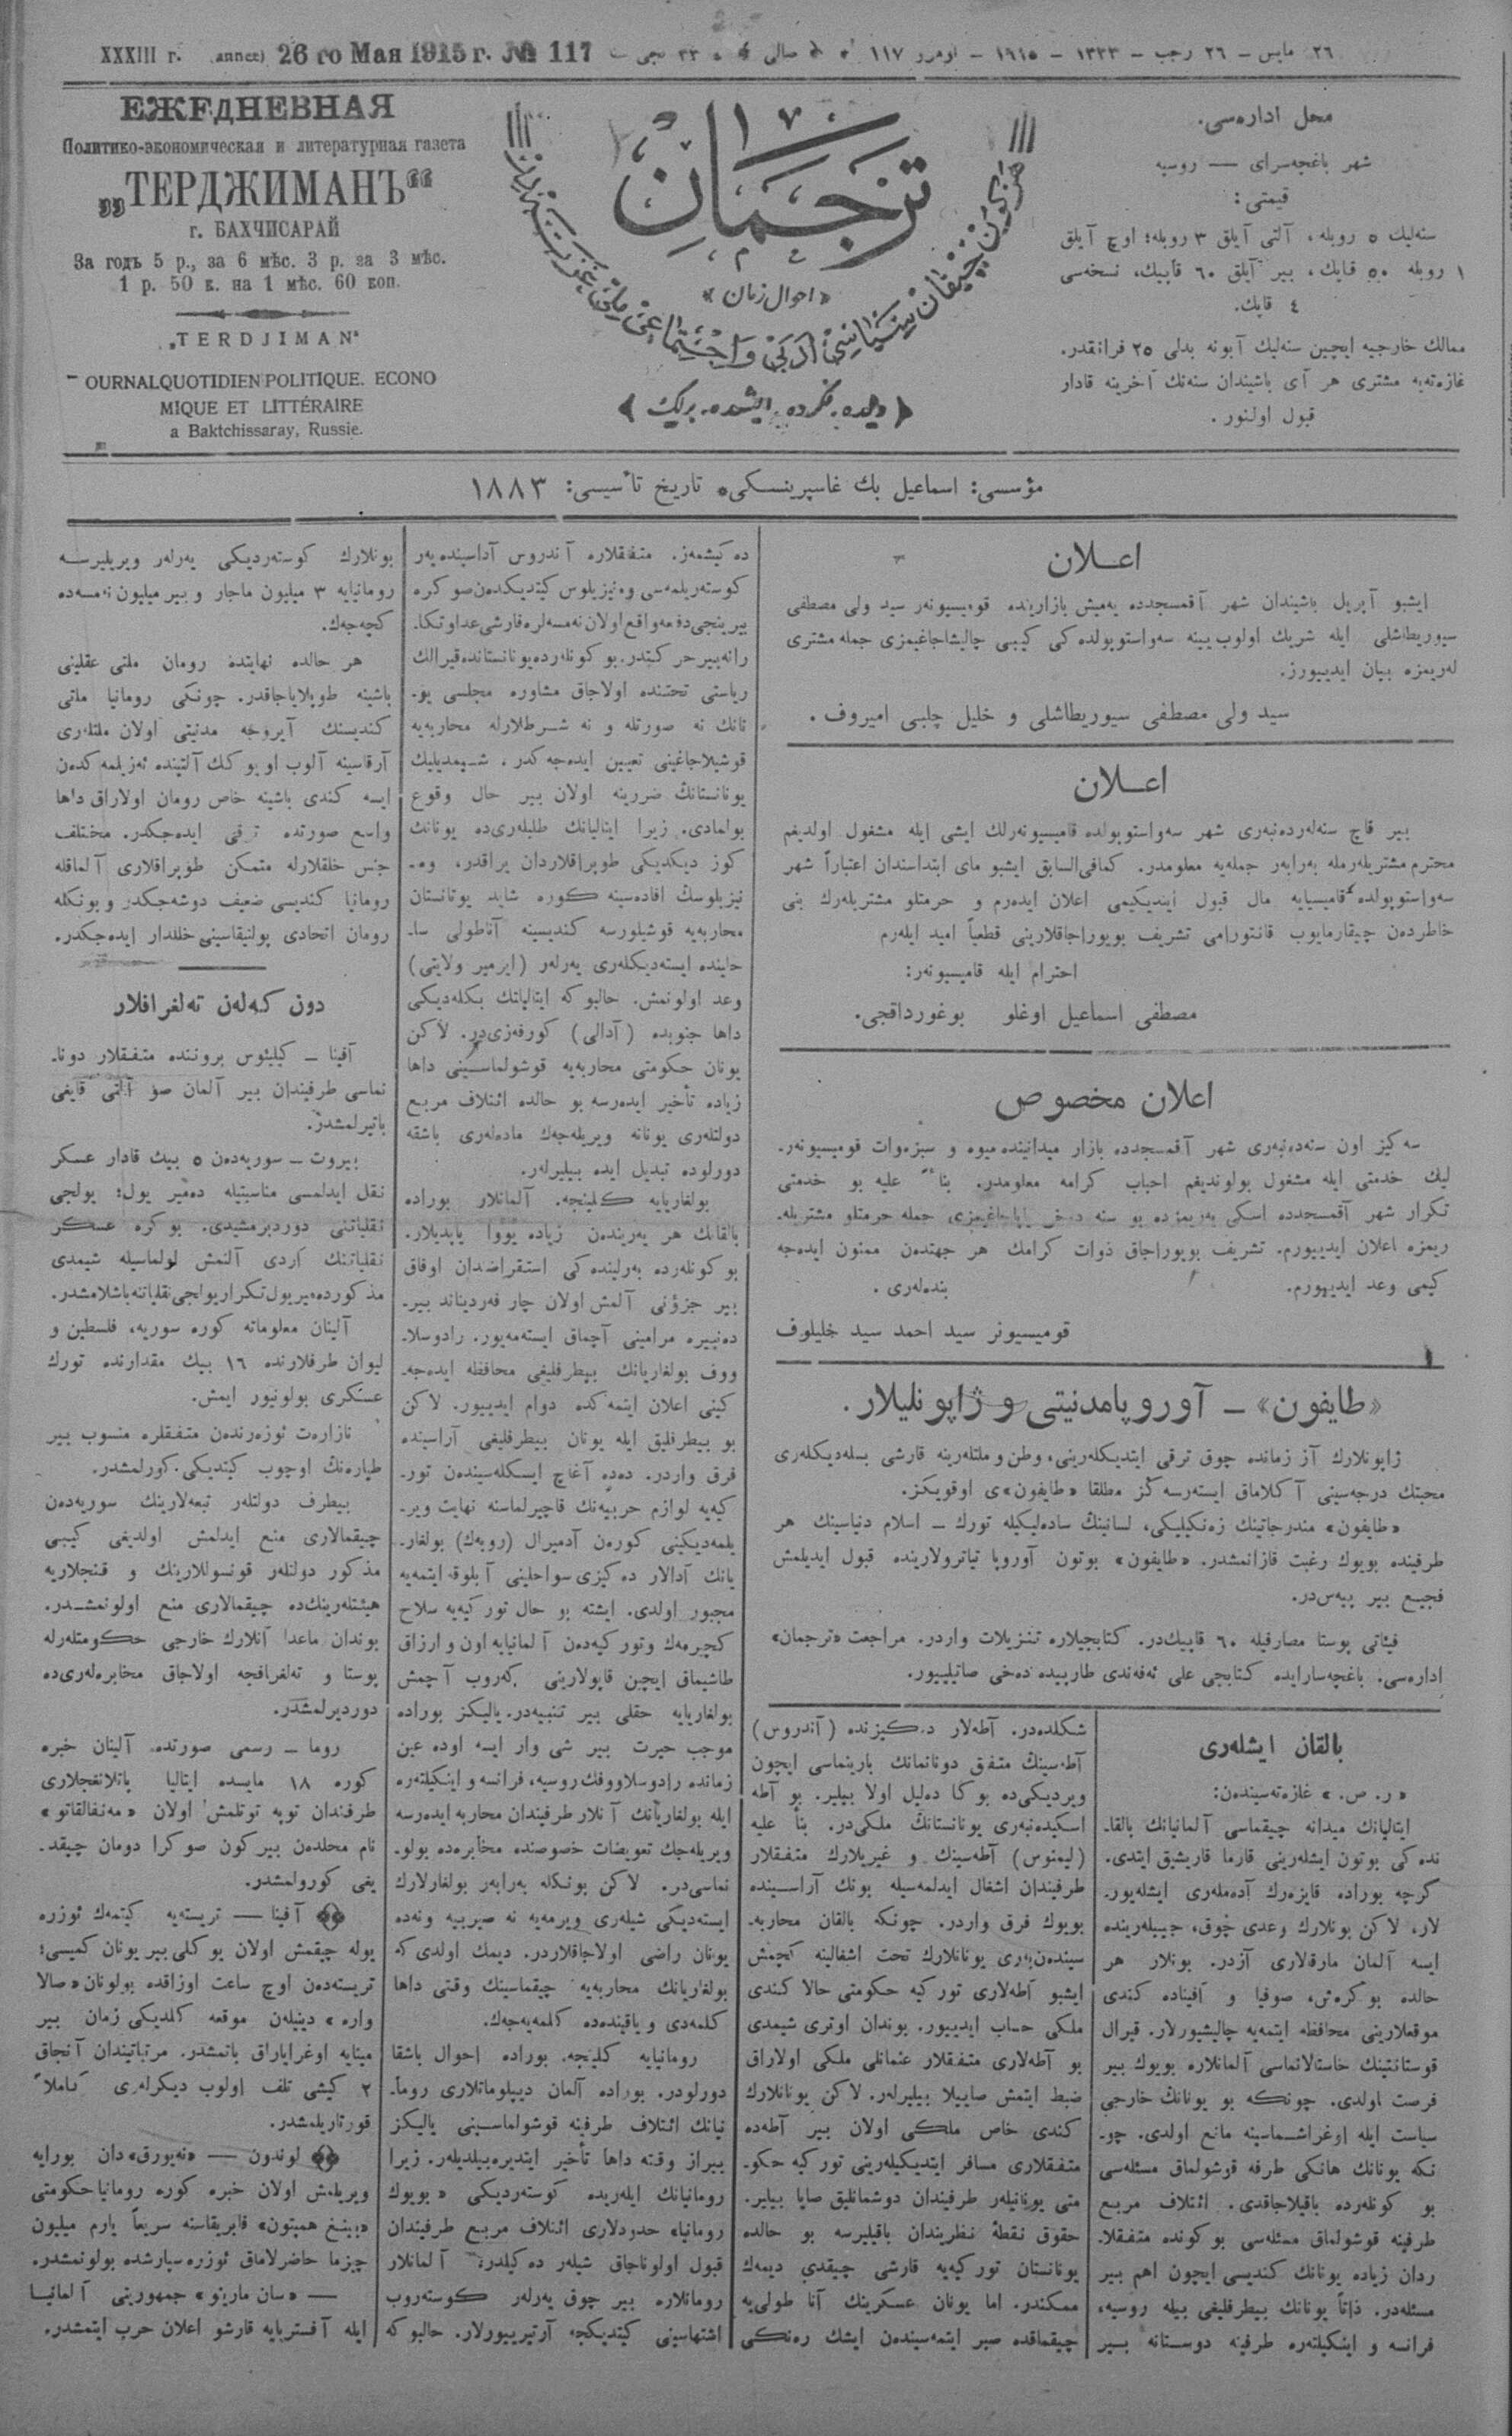 XXXIII г. (annee) 26 го Мая 1915 г. № 117
٢٦ مایس – ٢٦ رجب – ١٣٣٣ – ١٩١٥ – نومرو ١١٧
ЕЖЕДНЕВНАЯ
Политико-экономическая и литературная газета
„ТЕРДЖИМАНЪ“
г. БАХЧИСАРАЙ
За годъ 5 р., за 6 мѣс. 3 р. за 3 мѣс.
1 р. 50 к. на 1 мѣс. 60 коп.
„TERDJIMAN“
OURNALQUOTIDIEN POLITIQUE. ECONO
MIQUE ET LITTÉRAIRE
a Baktchissaray, Russie.
ترجمان
«احوال زمان»
دیلده، فکرده، ایشده، برلك
محل اداره‌سی.
شهر باغچه‌سرای — روسیه
قیمتی:
سنه‌لیك ٥ روبله، آلتی آیلق ٣ روبله؛ اوچ آیلق
١ روبله ٥٠ قاپك، بیر آیلق ٦٠ قاپیك، نسخه‌سی
٤ قاپك.
ممالك خارجیه ایچین سنه‌لیك آبونه بدلی ٢٥ فرانقدر.
غازه‌ته‌یه مشتری هر آی باشیندان سنه‌نك آخرینه قادار
قبول اولنور.
مؤسسی: اسماعیل بك غاسپرینسکی، تاریخ تأسیسی: ١٨٨٣
اعلان
ایشبو آپریل باشیندان شهر آقمسجدده یه‌میش بازارینده قومیسیونه‌ر سید ولی مصطفی
سیوریطاشلی ایله شریك اولوب یینه سه‌واستوپولده کی کیبی چالیشاجاغیمزی جمله مشتری
له‌ریمزه بیان ایدییورز.
سید ولی مصطفی سیوریطاشلی و خلیل چلبی امیروف.
اعلان
بیر قاچ سنه‌لرده‌نبه‌ری شهر سه‌واستوپولده قامیسیونه‌رلك ایشی ایله مشغول اولدیغم
محترم مشتریله‌رمله به‌رابه‌ر جمله‌یه معلومدر. کمافی‌السابق ایشبو مای ابتداسندان اعتباراً شهر
سه‌واستوپولده قامیسیایه مال قبول ایتدیکیمی اعلان ایده‌رم و حرمتلو مشتریله‌رك بنی
خاطردەن چیقارمایوب قانتورامی تشریف بویوراجاقلارینی قطعیاً امید ایله‌رم
احترام ایله قامیسیونه‌ر:
مصطفی اسماعیل اوغلو بوغورداقجی.
اعلان مخصوص
سه‌کیز اون سنه‌ده‌نبه‌ری شهر آقمسجدده بازار میدانینده میوه و سبزه‌وات قومیسیونه‌ر-
لیك خدمتی ایله مشغول بولوندیغم احباب کرامه معلومدر. بناءً علیه بو خدمتی
تکرار شهر آقمسجدده اسکی یه‌ریمزده بو سنه دخی یاپاجاغیمزی جمله حرمتلو مشتریله-
ریمزه اعلان ایدییورم. تشریف بویوراجاق ذوات کرامك هر جهتدەن ممنون ایده‌جه
کیمی وعد ایدییورم. بنده‌له‌ری.
قومیسیونر سید احمد سید خلیلوف
«طایفون» – آوروپا مدنیتی و ژاپونلیلار.
ژاپونلارك آز زمانده چوق ترقی ایتدیکله‌رینی، وطن و ملتله‌رینه قارشی بسله‌دیکله‌ری
محبتك درجه‌سینی آکلاماق ایسته‌رسه‌کز مطلقا «طایفون»ی اوقویکز.
«طایفون» مندرجاتینك زه‌نکیلیکی، لسانینك ساده‌لیکیله تورك – اسلام دنیاسینك هر
طرفینده بویوك رغبت قازانمشدر. «طایفون» بوتون آوروپا تیاترولارینده قبول ایدیلمش
فجیع بیر پیه‌س‌در.
فیئاتی پوستا مصارفیله ٦٠ قاپیك‌در. کتابجیلاره تنزیلات واردر. مراجعت «ترجمان»
اداره‌سی. باغچه‌سارایده کتابجی علی ئه‌فه‌ندی طارپیده دخی صاتیلییور.
بالقان ایشله‌ری
«ر. ص.» غازه‌ته‌سیندەن:
ایتالیانك میدانه چیقماسی آلمانیانك بالقا-
نده کی بوتون ایشله‌رینی قارما قاریشیق ایتدی.
گرچه بوراده قایزه‌رك آده‌مله‌ری ایشله‌یور-
لار، لاکن بونلارك وعدی چوق، جیبله‌رینده
ایسه آلمان مارقالاری آزدر. بونلار هر
حالده بوکره‌ش، صوفیا و آفیناده کندی
موقعلارینی محافظه ایتمه‌یه چالیشیورلار. قیرال
قوستانتینك خاستالانماسی آلمانلاره بویوك بیر
فرصت اولدی. چونکه بو یونانك خارجی
سیاست ایله اوغراشماسینه مانع اولدی. چو-
نکه یونانك هانکی طرفه قوشولماق مسئله‌سی
بو کونله‌رده باقیلاجاقدی. ائتلاف مربع
طرفینه قوشولماق مسئله‌سی بو کونده متفقلا-
ردان زیاده یونانك کندیسی ایچون اهم بیر
مسئله‌در. ذاتاً یونانك بیطرفلیغی بیله روسیه،
فرانسه و اینکیلته‌ره طرفینه دوستانه بیر
شکلده‌در. آطه‌لار دکیزنده (آندروس)
آطه‌سینك متفق دونانمانك بارینماسی ایچون
ویردیکی‌ده بوکا ده‌لیل اولا بیلیر. بو آطه
اسکیده‌نبه‌ری یونانستانك ملکی‌در. بناً علیه
(لیمنوس) آطه‌سینك و غیریلارك متفقلار
طرفیندان اشغال ایدلمه‌سیله بونك آراسینده
بویوك فرق واردر. چونکه بالقان محاربه-
سیندەن‌بەری یونانلارك تحت اشغالینه کچمش
ایشبو آطه‌لاری تورکیه حکومتی حالا کندی
ملکی حساب ایدییور. بوندان اوتری شیمدی
بو آطه‌لاری متفقلار عثمانلی ملکی اولاراق
ضبط ایتمش صاییلا بیلیرله‌ر. لاکن یونانلارك
کندی خاص ملکی اولان بیر آطه‌ده
متفقلاری مسافر ایتدیکیله‌رینی تورکیه حکو-
متی یونانیله‌ر طرفیندان دوشمانلیق صایا بیلیر.
حقوق نقطهٔ نظریندان باقیلیرسه بو حالده
یونانستان تورکیه‌یه قارشی چیقدی دیمه‌ك
ممکندر. اما یونان عسکرینك آنا طولی‌یه
چیقماقده صبر ایتمه‌سیندەن ایشك ره‌نکی
ده کیشمه‌ز. متفقلاره آندروس آداسینده یه‌ر
کوسته‌ریلمه‌سی وه‌نیزیلوس کیتدیکدەن‌صوکره
بیرینجی دفعه واقع اولان نه‌مسه‌لره قارشی عداوتکا-
رانه بیر حرکتدر. بو کونله‌رده یونانستانده قیرالك
ریاستی تحتنده اولاجاق مشاوره مجلسی یو-
نانك نه صورتله و نه شرطلارله محاربه‌یه
قوشیلاجاغینی تعیین ایده‌جه‌کدر، شیمدیلیك
یونانستانك ضررینه اولان بیر حال وقوع
بولمادی. زیرا ایتالیانك طلبله‌ری‌ده یونانك
کوز دیکدیکی طوپراقلاردان یراقدر، وه-
نیزیلوسك افاده‌سینه کوره شاید یونانستان
محاربه‌یه قوشیلورسه کندیسینه آناطولی سا-
حلینده ایسته‌دیکله‌ری یه‌رله‌ر (ایزمیر ولایتی)
وعد اولونمش. حالبوکه ایتالیانك بکله‌دیکی
داها جنوبده (آدالی) کورفه‌زی‌در. لاکن
یونان حکومتی محاربه‌یه قوشولماسینی داها
زیاده تأخیر ایده‌رسه بو حالده ائتلاف مربع
دولتله‌ری یونانه ویریله‌جه‌ك ماده‌له‌ری باشقه
دورلوده تبدیل ایده بیلیرله‌ر.
بولغاریایه کلینجه. آلمانلار بوراده
بالقانك هر یه‌ریندەن زیاده یووا یاپدیلار.
بو کونله‌رده به‌رلینده کی استقراضدان اوفاق
بیر جزؤنی آلمش اولان چار فه‌ردیناند بیر-
ده‌نبیره مرامینی آچماق ایسته‌مه‌یور. رادوسلا-
ووف بولغاریانك بیطرفلیغی محافظه ایده‌جه-
کینی اعلان ایتمه‌کده دوام ایدییور. لاکن
بو بیطرفلیق ایله یونان بیطرفلیغی آراسینده
فرق واردر. ده‌ده آغاچ ایسکله‌سیندەن تور-
کیه‌یه لوازم حربیه‌نك قاچیرلماسنه نهایت ویر-
یلمه‌دیکینی کورەن آدمیرال (رویه‌ك) بولغار-
یانك آدالار ده‌کیزی سواحلینی آبلوقه ایتمه‌یه
مجبور اولدی. ایشته بو حال تورکیه‌یه سلاح
کچیرمه‌ك و تورکیه‌دەن آلمانیایه اون و ارزاق
طاشیماق ایچین قاپولارینی که‌روب آچمش
بولغاریایه حقلی بیر تنبیه‌در. یالیکز بوراده
موجب حیرت بیر شی وار ایسه اوده عین
زمانده رادوسلاووفك روسیه، فرانسه و اینکیلته‌ره
ایله بولغاریانك آنلار طرفیندان محاربه ایده‌رسه
ویریله‌جك تعویضات خصوصنده مخابره‌ده بولو-
نماسی‌در. لاکن بونکله به‌رابه‌ر بولغارلارك
ایسته‌دیکی شیله‌ری ویرمه‌یه نه صیربیه ونه‌ده
یونان راضی اولاجاقلاردر. دیمك اولدی که
بولغاریانك محاربه‌یه چیقماسینك وقتی داها
کلمه‌دی و یاقینده‌ده کلمه‌یه‌جه‌ك.
رومانیایه کلینجه. بوراده احوال باشقا
دورلودر. بوراده آلمان دیپلوماتلاری روما-
نیانك ائتلاف طرفینه قوشولماسینی یالیکز
بیراز وقته داها تأخیر ایتدیره‌بیلدیله‌ر. زیرا
رومانیانك ایله‌ریده کوسته‌ردیکی «بویوك
رومانیا» حدودلاری ائتلاف مربع طرفیندان
قبول اولوناجاق شیله‌ر ده‌کیلدر. آلمانلار
رومانلاره بیر چوق یه‌رله‌ر کوسته‌روب
اشتهاسینی کیتدیکجه آرتیرییورلار. حالبوکه
بونلارك کوسته‌ردیکی یه‌رله‌ر ویریلیرسه
رومانیایه ٣ میلیون ماجار و بیر میلیون نه‌مسه‌ده
کچه‌جه‌ك.
هر حالده نهایتده رومان ملتی عقلینی
باشینه طوپلایاجاقدر. چونکی رومانیا ملتی
کندیسنك آیروجه مدنیتی اولان ملتله‌ری
آرقاسینه آلوب او یوکك آلتینده ئه‌زیلمه‌کدەن
ایسه کندی باشینه خاص رومان اولاراق داها
واسع صورتده ترقی ایده‌جکدر. مختلف
جنس خلقلارله متمکن طوپراقلاری آلماقله
رومانیا کندیسی ضعیف دوشه‌جکدر و بونکله
رومان اتحادی پولتیقاسینی خللدار ایده‌جکدر.
دون که‌لەن ته‌لغرافلار
آفینا – کیلیئوس بروننده متفقلار دونا-
نماسی طرفیندان بیر آلمان صو آلتی قایغی
باتیرلمشدر.
بیروت – سوریه‌دەن ٥ بیك قادار عسکر
نقل ایدلمسی مناسبتیله ده‌میر یول؛ یولجی
نقلیاتنی دوردیرمشیدی. بو کره عسکر
نقلیاتنك آردی آلنمش اولماسیله شیمدی
مذکور ده‌میریول تکرار یولجی نقلیاتنه باشلامشدر.
آلینان معلوماته کوره سوریه، فلسطین و
لیوان طرفلارنده ١٦ بیك مقدارنده تورك
عسکری بولونیور ایمش.
نازاره‌ت ئوزه‌رندەن متفقلره منسوب بیر
طیاره‌نك اوچوب کیتدیکی کورلمشدر.
بیطرف دولتله‌ر تبعه‌لارینك سوریه‌دەن
چیقمالاری منع ایدلمش اولدیغی کیبی
مذکور دولتله‌ر قونسوللارینك و قنجلاریه
هیئتله‌رینك‌ده چیقمالاری منع اولونمشدر.
بوندان ماعدا آنلارك خارجی حکومتله‌رله
پوستا و ته‌لغرافجه اولاجاق مخابره‌له‌ری‌ده
دوردیرلمشدر.
روما – رسمی صورتده آلینان خبره
کوره ١٨ مایسده ایتالیا یاتلانغجلاری
طرفندان توپه توتلمش اولان «مه‌نفالقاتو»
نام محلدەن بیر کون صوکرا دومان چیقد-
یغی کورولمشدر.
آفینا — تریسته‌یه کیتمه‌ك ئوزره
یوله چیقمش اولان یوکلی بیر یونان کمیسی؛
تریسته‌دەن اوچ ساعت اوزاقده بولونان «صالا
واره» دینیلەن موقعه کلدیکی زمان بیر
مینایه اوغرایاراق باتمشدر. مرتباتیندان آنجاق
٢ کیشی تلف اولوب دیکرله‌ری کاملاً
قورتاریلمشدر.
لوندون — «نه‌یورق»دان بورایه
ویریلمش اولان خبره کوره رومانیا حکومتی
«بیتنغ همپتون» فابریقاسنه سریعاً یارم میلیون
چزما حاضرلاماق ئوزره سپارشده بولونمشدر.
— «سان مارینو» جمهوریتی آلمانیا
ایله آفستریایه قارشو اعلان حرب ایتمشدر.